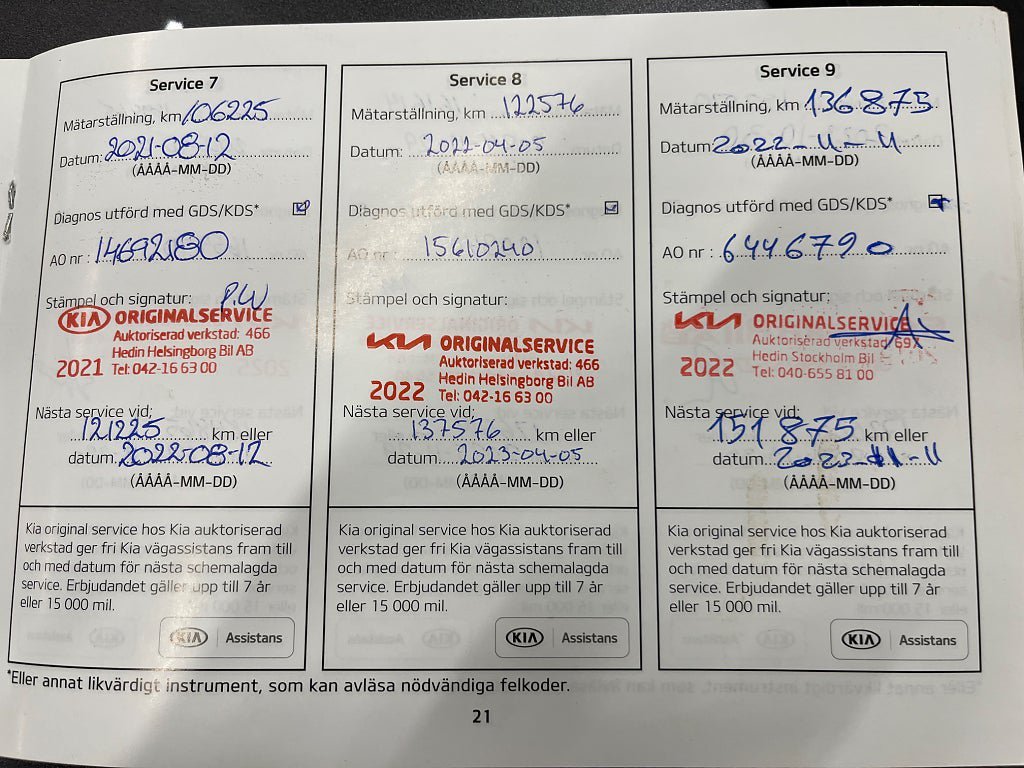 Service 7
Mätarställning, km 106225
Datum: 2021-08-12
(ÅÅÅÅ-MM-DD)
Diagnos utförd med GDS/KDS*
AO nr : 14692180
Stämpel och signatur: P.W
KIA ORIGINALSERVICE
Auktoriserad verkstad: 466
Hedin Helsingborg Bil AB
2021 Tel: 042-16 63 00
Nästa service vid:
121225 km eller
datum 2022-08-12
(ÅÅÅÅ-MM-DD)
Kia original service hos Kia auktoriserad
verkstad ger fri Kia vägassistans fram till
och med datum för nästa schemalagda
service. Erbjudandet gäller upp till 7 år
eller 15 000 mil.
KIA Assistans
Service 8
Mätarställning, km 122576
Datum: 2022-04-05
(ÅÅÅÅ-MM-DD)
Diagnos utförd med GDS/KDS*
AO nr : 15610240
Stämpel och signatur:
KIA ORIGINALSERVICE
Auktoriserad verkstad: 466
Hedin Helsingborg Bil AB
2022 Tel: 042-16 63 00
Nästa service vid:
137576 km eller
datum 2023-04-05
(ÅÅÅÅ-MM-DD)
Kia original service hos Kia auktoriserad
verkstad ger fri Kia vägassistans fram till
och med datum för nästa schemalagda
service. Erbjudandet gäller upp till 7 år
eller 15 000 mil.
KIA Assistans
Service 9
Mätarställning, km 136875
Datum: 2022-11-11
(ÅÅÅÅ-MM-DD)
Diagnos utförd med GDS/KDS*
AO nr : 6446790
Stämpel och signatur:
KIA ORIGINALSERVICE
Auktoriserad verkstad
Hedin Stockholm Bil
2022 Tel: 040-655 81 00
Nästa service vid:
151875 km eller
datum 2023-11-11
(ÅÅÅÅ-MM-DD)
Kia original service hos Kia auktoriserad
verkstad ger fri Kia vägassistans fram till
och med datum för nästa schemalagda
service. Erbjudandet gäller upp till 7 år
eller 15 000 mil.
KIA Assistans
*Eller annat likvärdigt instrument, som kan avläsa nödvändiga felkoder.
21